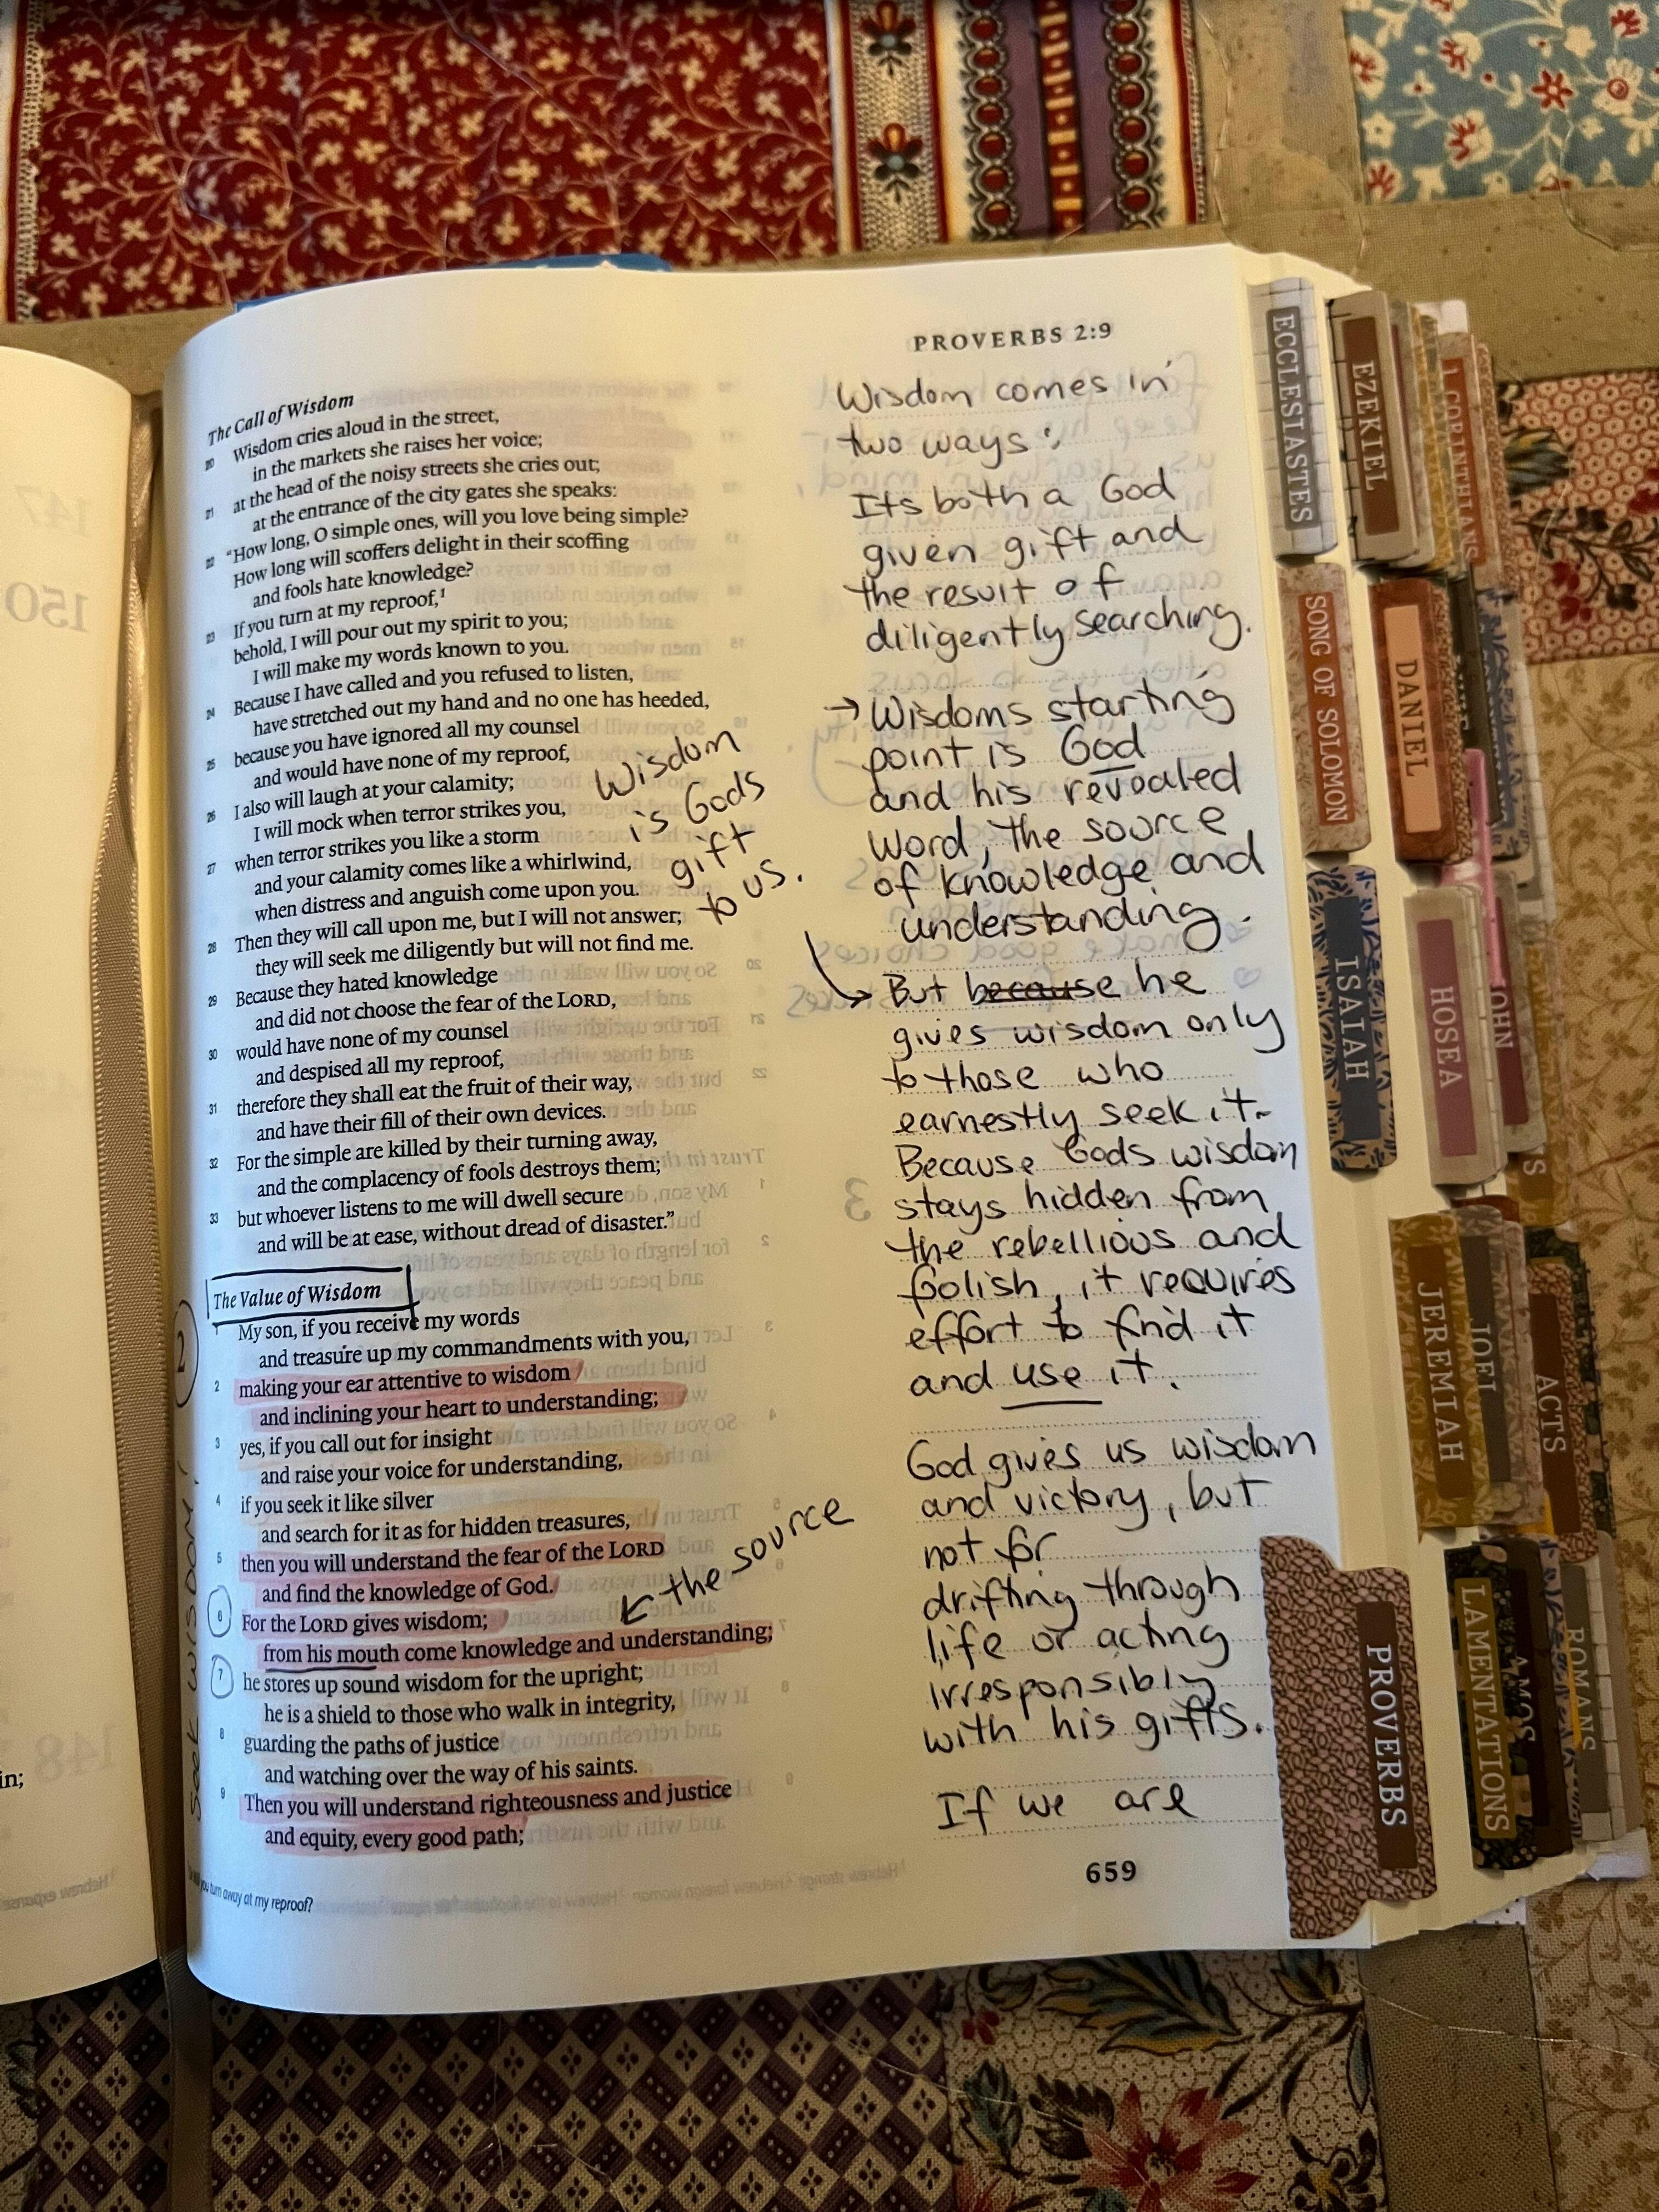 PROVERBS 2:9
The Call of Wisdom
20 Wisdom cries aloud in the street,
in the markets she raises her voice;
21 at the head of the noisy streets she cries out;
at the entrance of the city gates she speaks:
22 “How long, O simple ones, will you love being simple?
How long will scoffers delight in their scoffing
and fools hate knowledge?
23 If you turn at my reproof,¹
behold, I will pour out my spirit to you;
I will make my words known to you.
24 Because I have called and you refused to listen,
have stretched out my hand and no one has heeded,
25 because you have ignored all my counsel
and would have none of my reproof,
26 I also will laugh at your calamity;
I will mock when terror strikes you,
27 when terror strikes you like a storm
and your calamity comes like a whirlwind,
when distress and anguish come upon you.
28 Then they will call upon me, but I will not answer;
they will seek me diligently but will not find me.
29 Because they hated knowledge
and did not choose the fear of the LORD,
30 would have none of my counsel
and despised all my reproof,
31 therefore they shall eat the fruit of their way,
and have their fill of their own devices.
32 For the simple are killed by their turning away,
and the complacency of fools destroys them;
33 but whoever listens to me will dwell secure
and will be at ease, without dread of disaster.”
Wisdom
is Gods
gift
to us.
The Value of Wisdom
2
1 My son, if you receive my words
and treasure up my commandments with you,
2 making your ear attentive to wisdom
and inclining your heart to understanding;
3 yes, if you call out for insight
and raise your voice for understanding,
4 if you seek it like silver
and search for it as for hidden treasures,
5 then you will understand the fear of the LORD
and find the knowledge of God.
6 For the LORD gives wisdom;
from his mouth come knowledge and understanding;
7 he stores up sound wisdom for the upright;
he is a shield to those who walk in integrity,
8 guarding the paths of justice
and watching over the way of his saints.
9 Then you will understand righteousness and justice
and equity, every good path;
the source
Seek WISDOM!
you turn away at my reproof?
Wisdom comes in
two ways:
Its both a God
given gift and
the result of
diligently searching.
→ Wisdoms starting
point is God
and his revealed
Word, the source
of knowledge and
understanding.
But because he
gives wisdom only
to those who
earnestly seek it.
Because Gods wisdom
stays hidden from
the rebellious and
folish, it requires
effort to find it
and use it.
God gives us wisdom
and victory, but
not for
drifting through
life or acting
irresponsibly
with his gifts.
If we are
659
in;
ECCLESIASTES
SONG OF SOLOMON
ISAIAH
JEREMIAH
PROVERBS
EZEKIEL
DANIEL
HOSEA
JOEL
LAMENTATIONS
AMOS
1 CORINTHIANS
JOHN
ACTS
ROMANS